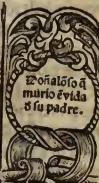 Doñalõso q̃
murio ẽvida
d̛ su padre.